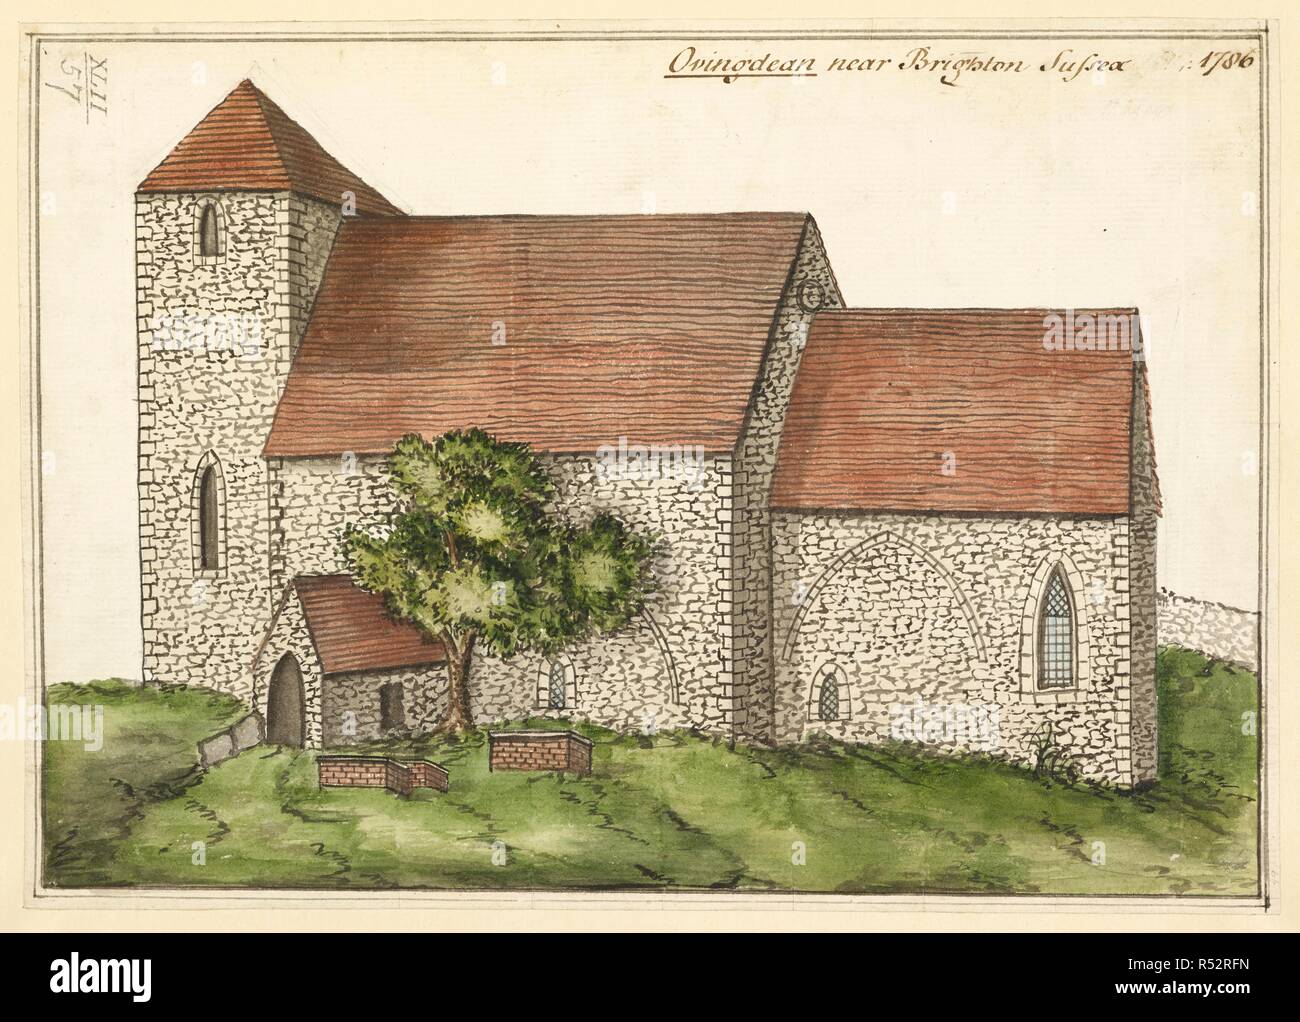 XLII
57
Ovingdean near Brighton Sussex 1786
alamy
Image ID: R52RFN
www.alamy.com